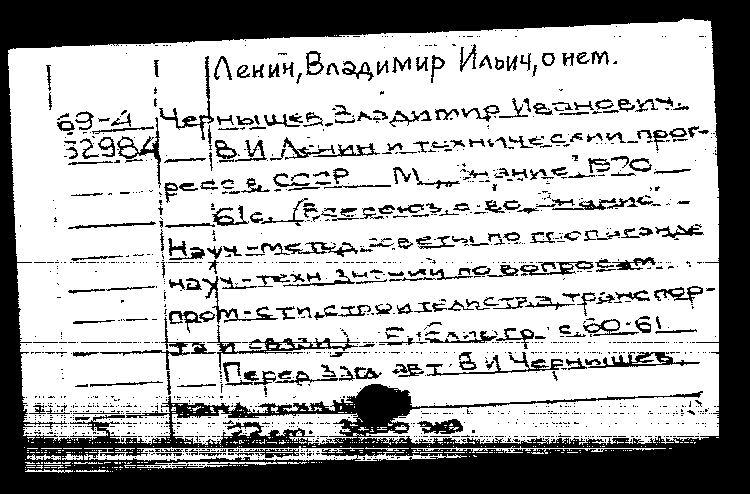 Ленин, Владимир Ильич, о нем.
69-4 Чернышев Владимир Иванович.
32984 В.И. Ленин и технический прог-
ресс в СССР М., "Знание", 1970
61 с. (Всесоюз. о-во "Знание"
Науч.-метод. советы по пропаганде
науч.-техн. знаний по вопросам
пром-сти, строительства, транспор-
та и связи.) Библиогр. с. 60-61
Перед загл. авт. В.И. Чернышев,
канд. техн.
5 22 см. экз.